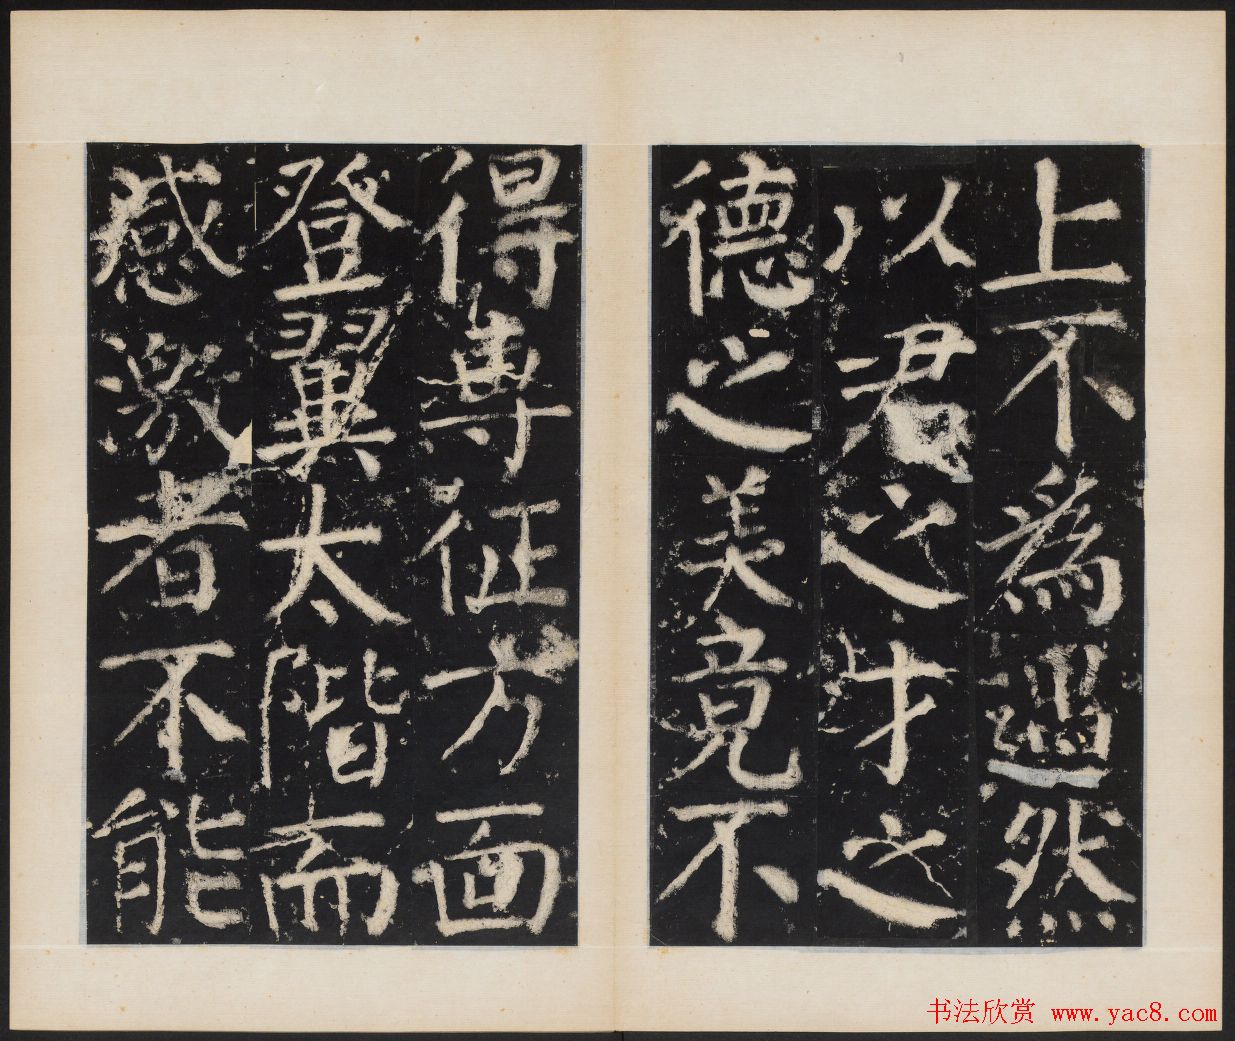 上不為過然
以君之才之
德之美竟不
得專征方面
登翼太階而
感激者不能
书法欣赏 www.yac8.com